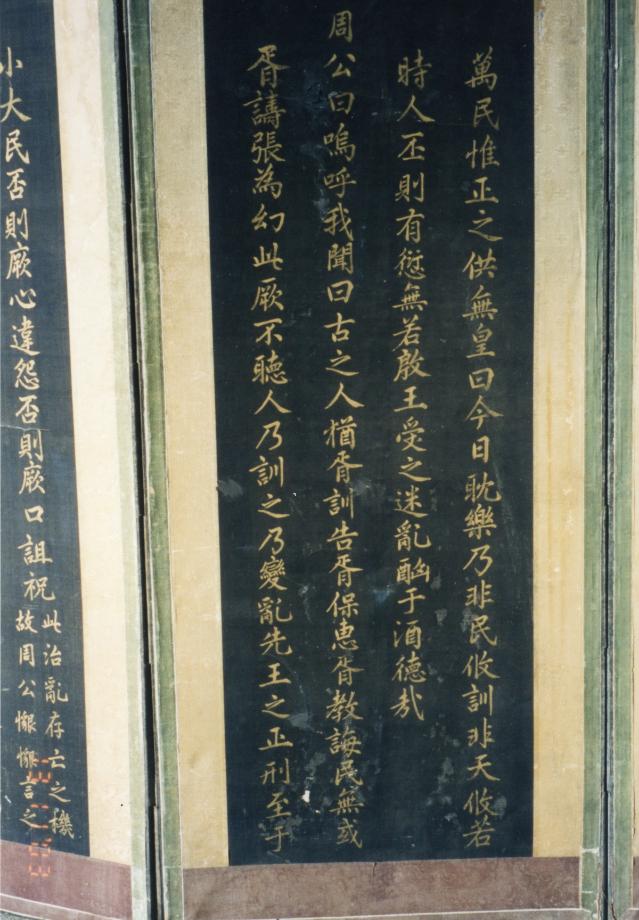 萬民惟正之供無皇曰今日耽樂乃非民攸訓非天攸若
時人丕則有愆無若殷王受之迷亂酗于酒德哉
周公曰嗚呼我聞曰古之人猶胥訓告胥保惠胥教誨民無或
胥譸張為幻此厥不聽人乃訓之乃變亂先王之正刑至于
小大民否則厥心違怨否則厥口詛祝
此治亂存亡之機
故周公懇懇言之